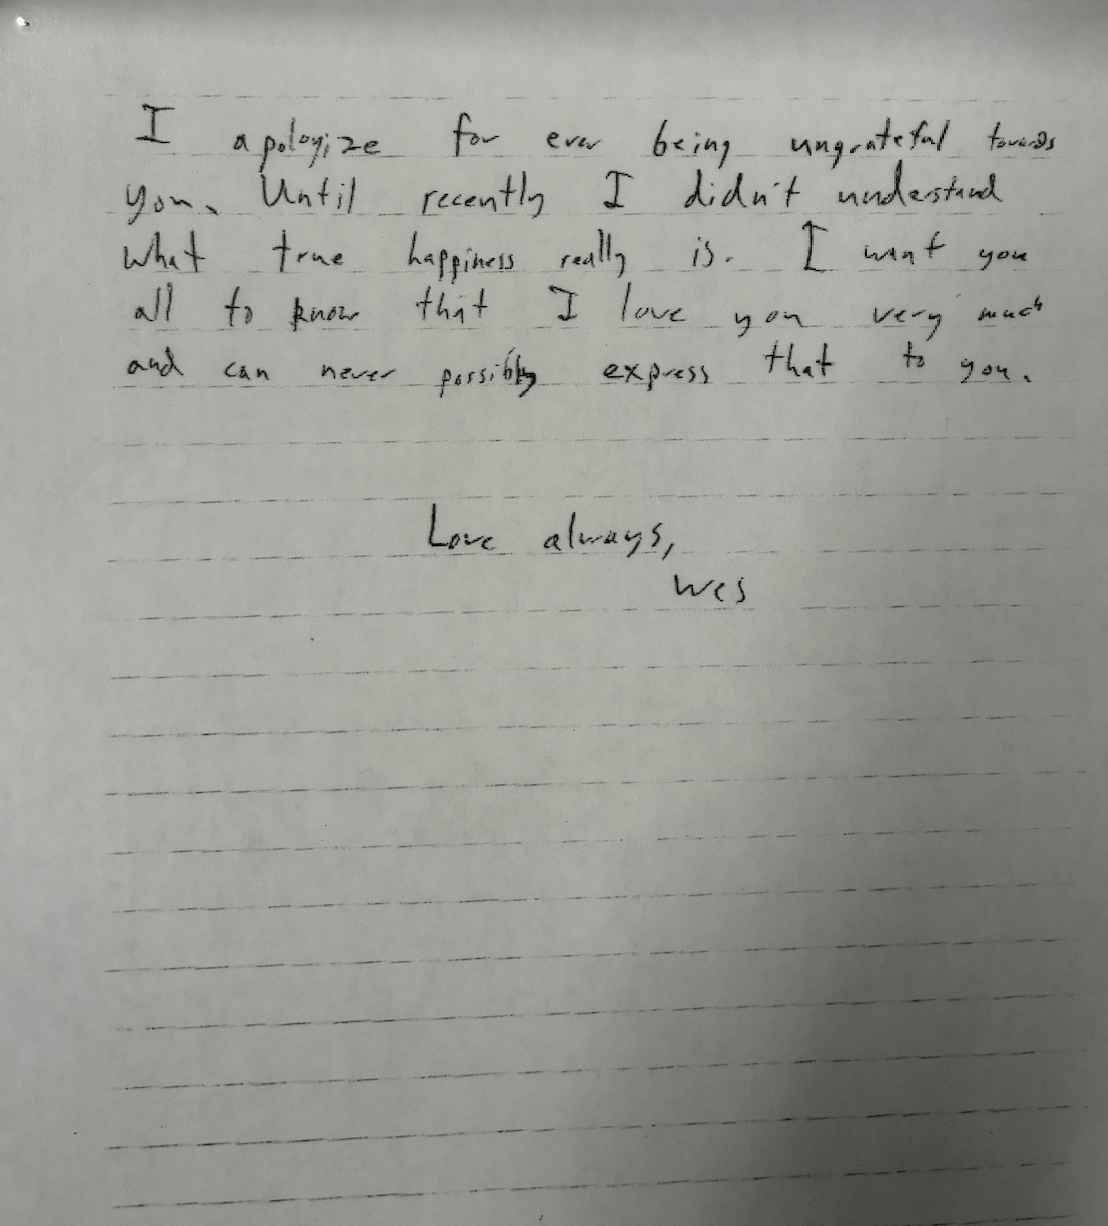 I apologize for ever being ungrateful towards
you. Until recently I didn't understand
what true happiness really is. I want you
all to know that I love you very much
and can never possibly express that to you.
Love always,
Wes